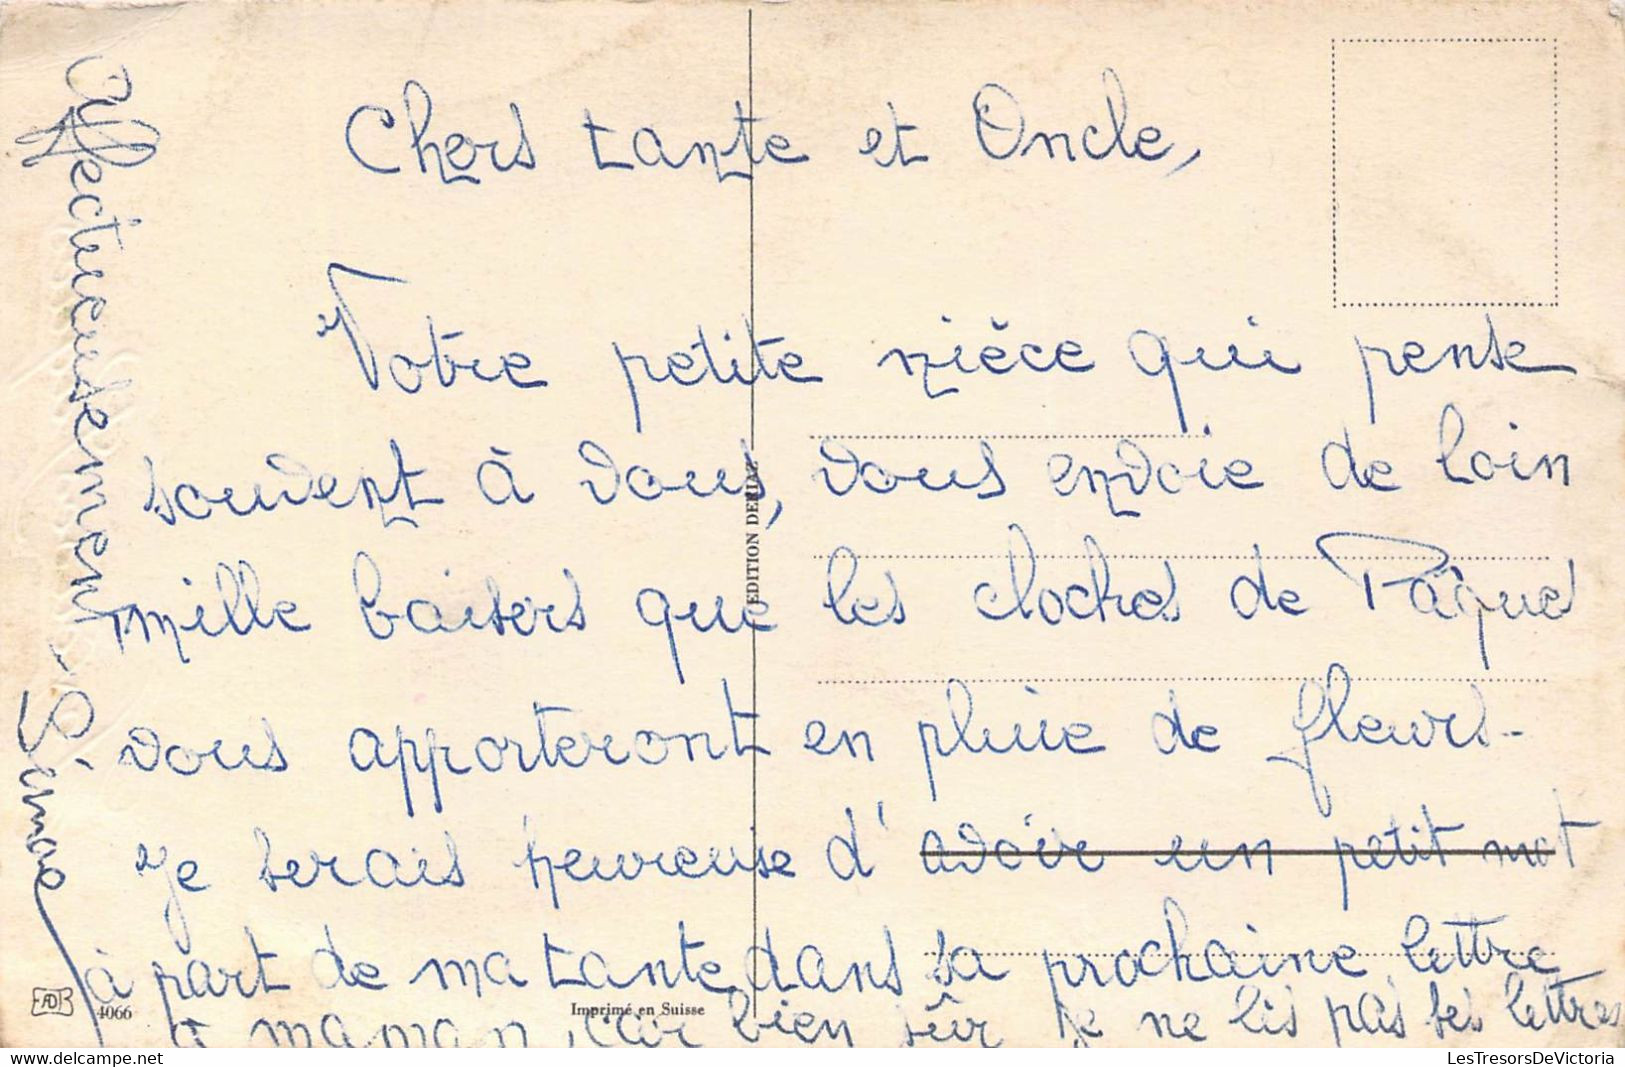 Chers tante et Oncle,
Votre petite nièce qui pense
souvent à vous, vous envoie de loin
mille baisers que les cloches de Pâques
vous apporteront en pluie de fleurs-
Je serais heureuse d'avoir un petit mot
à part de ma tante dans sa prochaine lettre
à maman, car bien sûr je ne lis pas ses lettres
Affectueusement - Simone
EDITION DERIAZ
ADB
4066
Imprimé en Suisse
LesTresorsDeVictoria